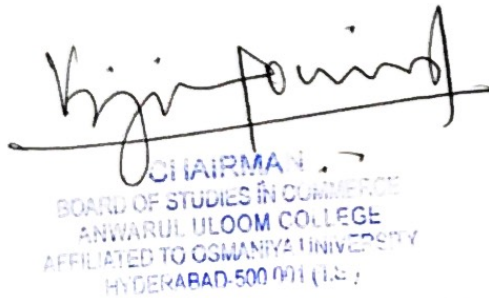 CHAIRMAN
BOARD OF STUDIES IN COMMERCE
ANWARUL ULOOM COLLEGE
AFFILIATED TO OSMANIYA UNIVERSITY
HYDERABAD-500 001